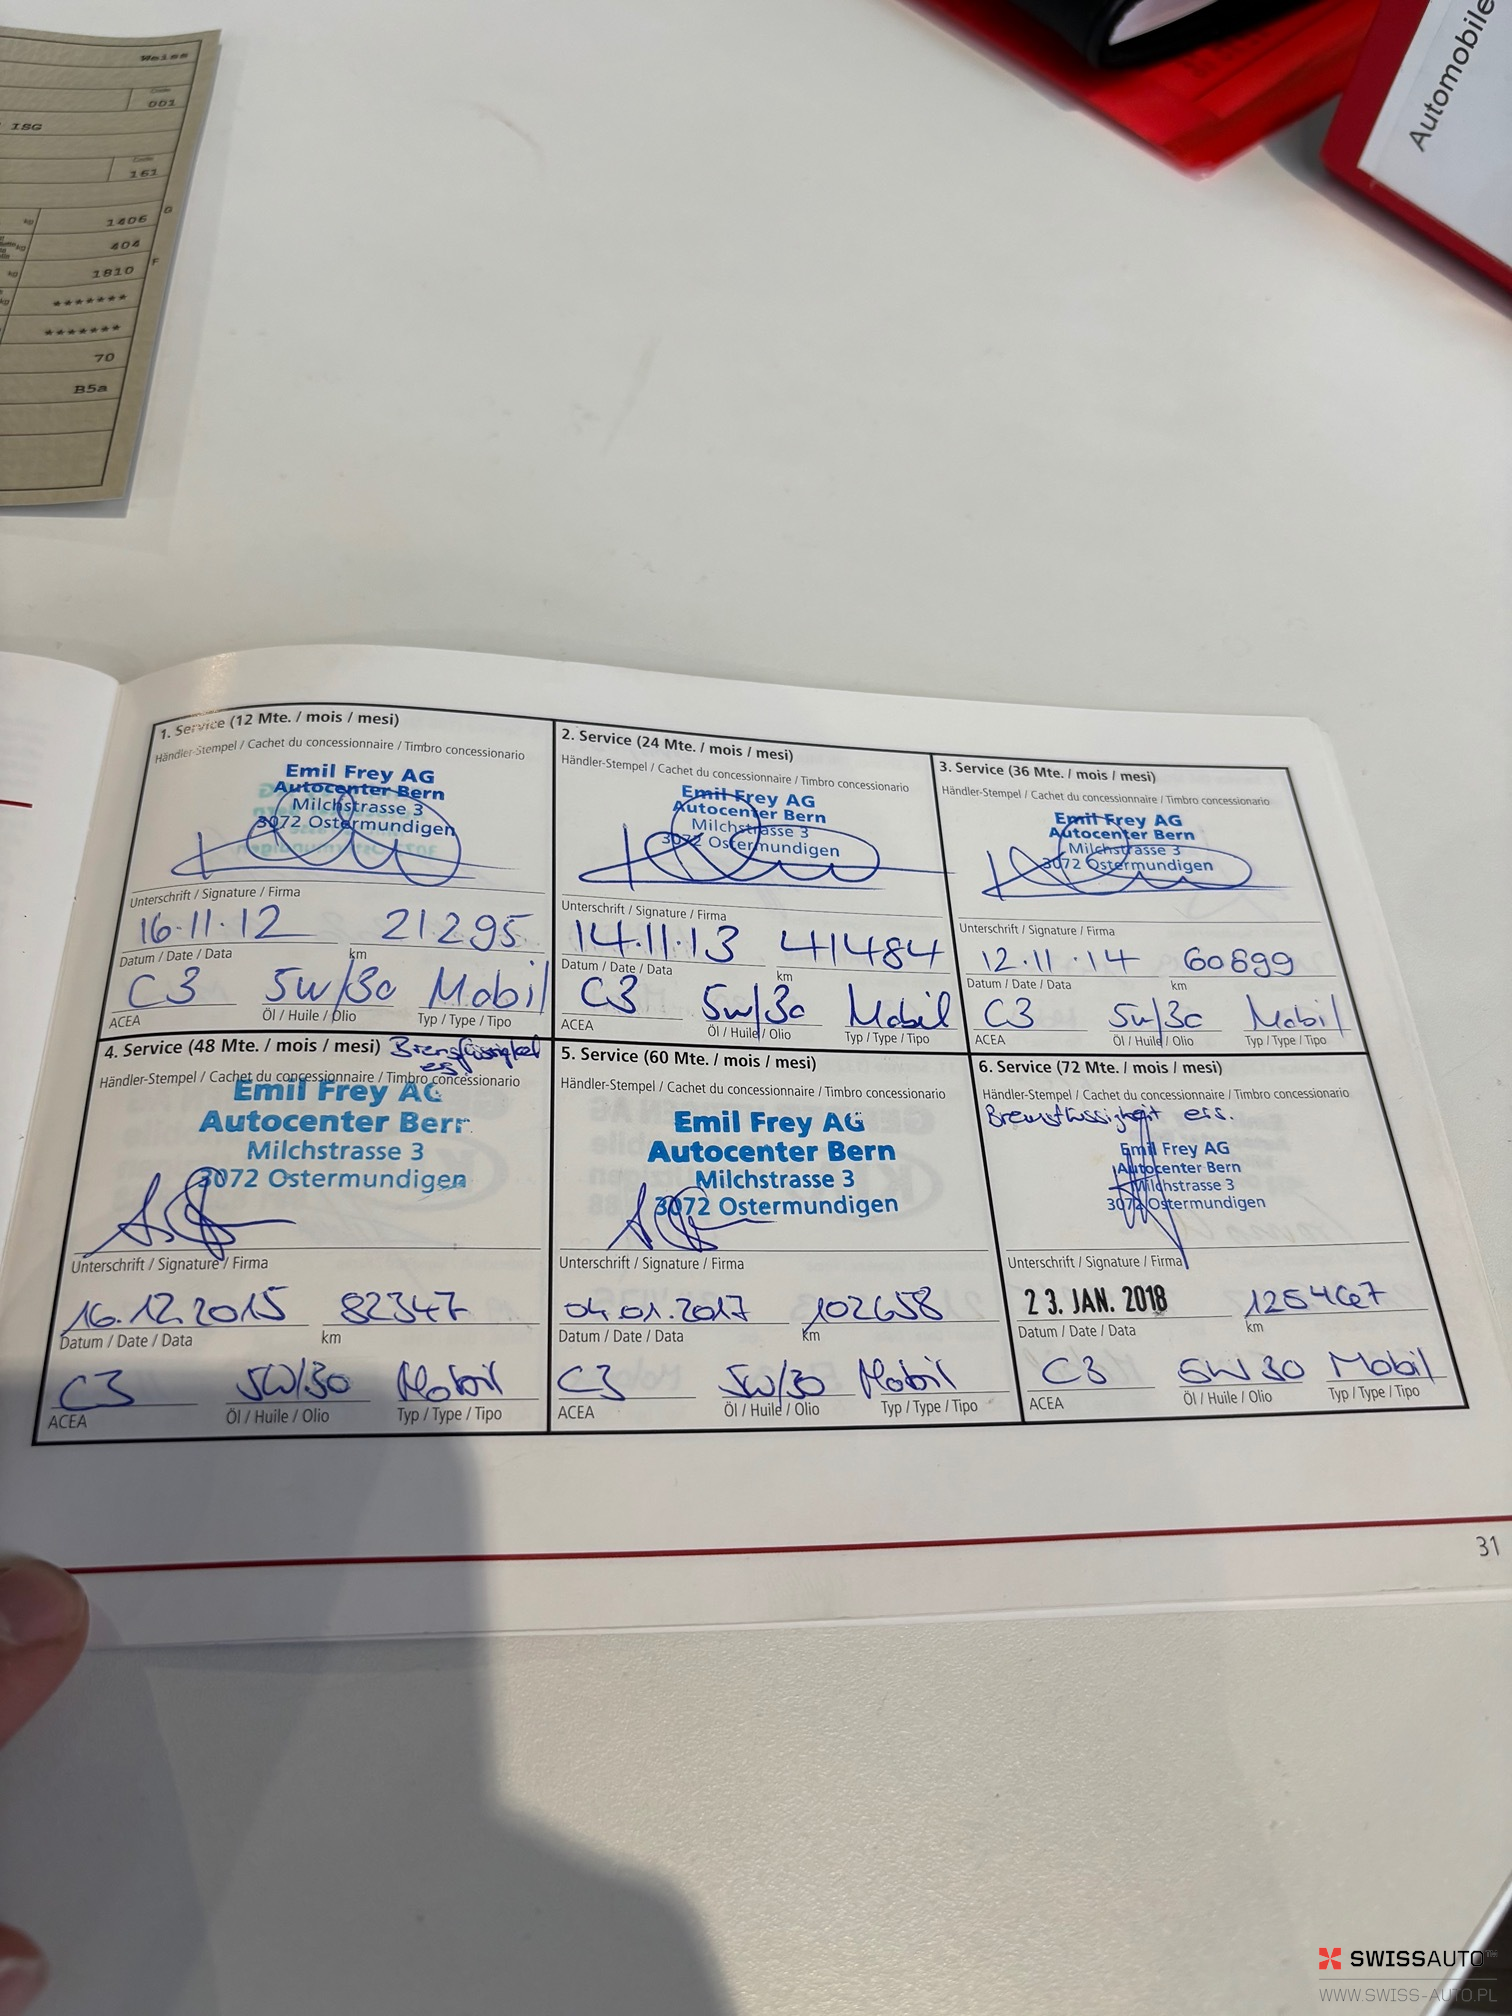 Weiss
Code
001
ISG
Code
161
kg 1406 G
404
kg 1810 F
kg *******
*******
70
B5a
Automobile
1. Service (12 Mte. / mois / mesi)
Händler-Stempel / Cachet du concessionnaire / Timbro concessionario
Emil Frey AG
Autocenter Bern
Milchstrasse 3
3072 Ostermundigen
Unterschrift / Signature / Firma
16.11.12 21295
Datum / Date / Data km
C3 5W/30 Mobil
ACEA Öl / Huile / Olio Typ / Type / Tipo
2. Service (24 Mte. / mois / mesi)
Händler-Stempel / Cachet du concessionnaire / Timbro concessionario
Emil Frey AG
Autocenter Bern
Milchstrasse 3
3072 Ostermundigen
Unterschrift / Signature / Firma
14.11.13 41484
Datum / Date / Data km
C3 5W/30 Mobil
ACEA Öl / Huile / Olio Typ / Type / Tipo
3. Service (36 Mte. / mois / mesi)
Händler-Stempel / Cachet du concessionnaire / Timbro concessionario
Emil Frey AG
Autocenter Bern
Milchstrasse 3
3072 Ostermundigen
Unterschrift / Signature / Firma
12.11.14 60899
Datum / Date / Data km
C3 5W/30 Mobil
ACEA Öl / Huile / Olio Typ / Type / Tipo
4. Service (48 Mte. / mois / mesi)
Händler-Stempel / Cachet du concessionnaire / Timbro concessionario
Emil Frey AG
Autocenter Bern
Milchstrasse 3
3072 Ostermundigen
Unterschrift / Signature / Firma
16.12.2015 82347
Datum / Date / Data km
C3 5W/30 Mobil
ACEA Öl / Huile / Olio Typ / Type / Tipo
5. Service (60 Mte. / mois / mesi)
Händler-Stempel / Cachet du concessionnaire / Timbro concessionario
Emil Frey AG
Autocenter Bern
Milchstrasse 3
3072 Ostermundigen
Unterschrift / Signature / Firma
04.01.2017 102658
Datum / Date / Data km
C3 5W/30 Mobil
ACEA Öl / Huile / Olio Typ / Type / Tipo
6. Service (72 Mte. / mois / mesi)
Händler-Stempel / Cachet du concessionnaire / Timbro concessionario
Bremsflüssigkeit ers.
Emil Frey AG
Autocenter Bern
Milchstrasse 3
3072 Ostermundigen
Unterschrift / Signature / Firma
23. JAN. 2018
Datum / Date / Data km
C3 5W30 Mobil
ACEA Öl / Huile / Olio Typ / Type / Tipo
31
SWISSAUTO™
WWW.SWISS-AUTO.PL